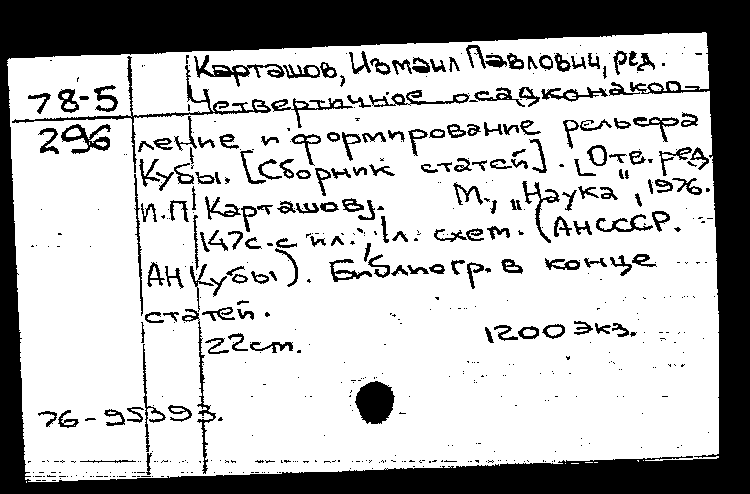 Карташов, Измаил Павлович, ред.
78-5 Четвертичное осадконакоп-
296 ление и формирование рельефа
Кубы. [Сборник статей]. [Отв. ред.
И.П. Карташов]. М., „Наука“, 1976.
147с. с ил., 1л. схем. (АНСССР.
АН Кубы). Библиогр. в конце
статей.
22см. 1200 экз.
76-95393.